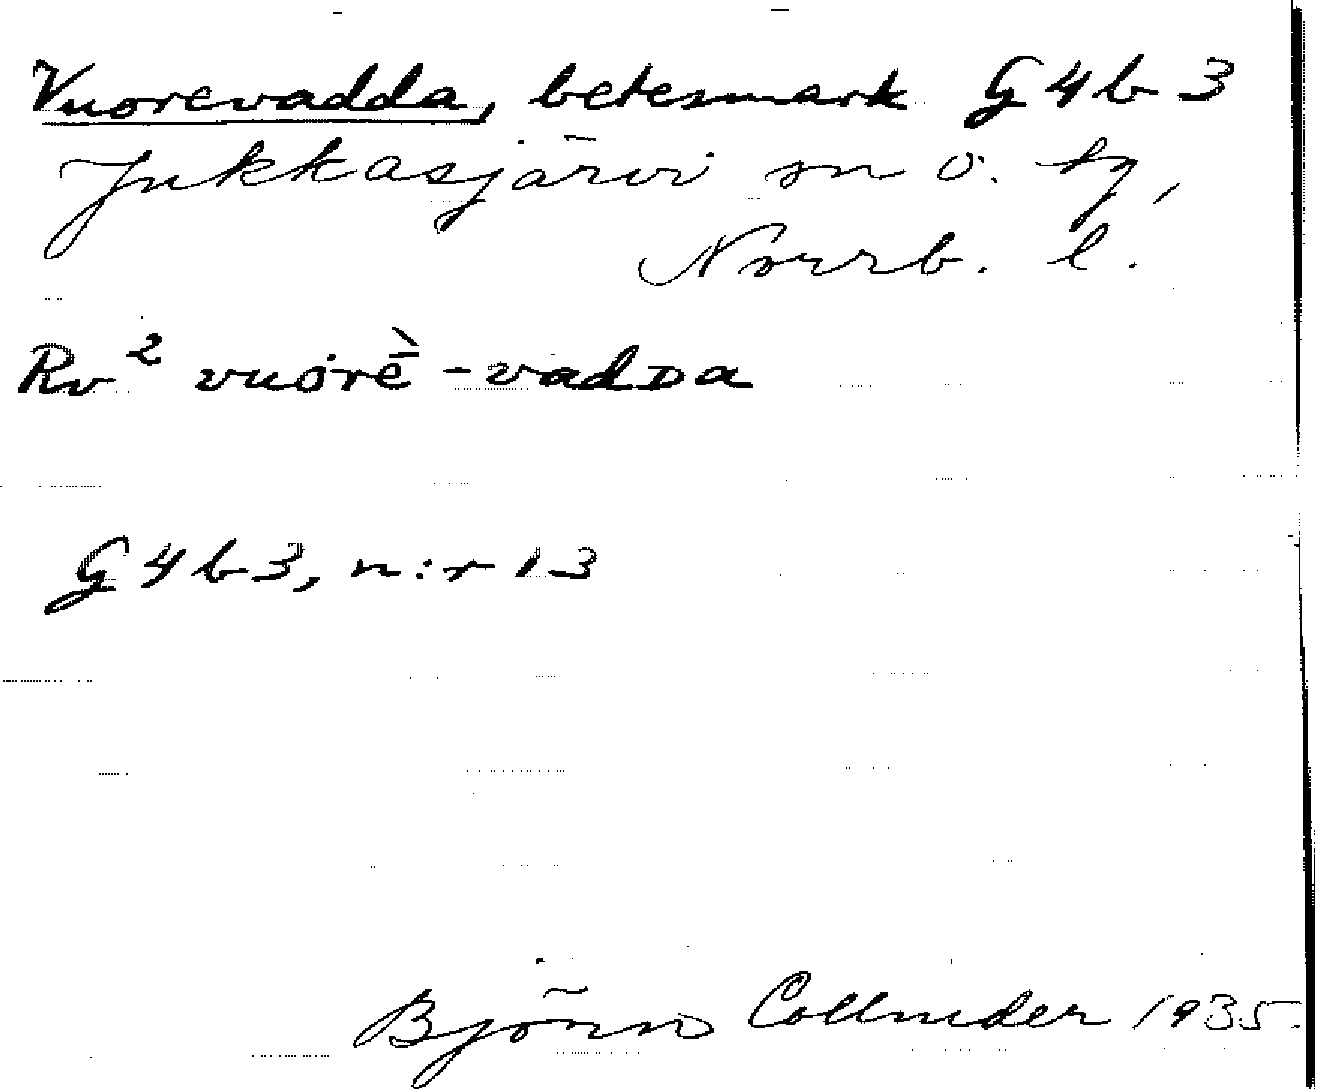 Vuorevadda, betesmark G4b3
Jukkasjärvi sn o. tg,
Norrb. l.
Rv² vuȯrḕ-vadᴅa
G4b3, n:r 13
Björn Collinder 1935.